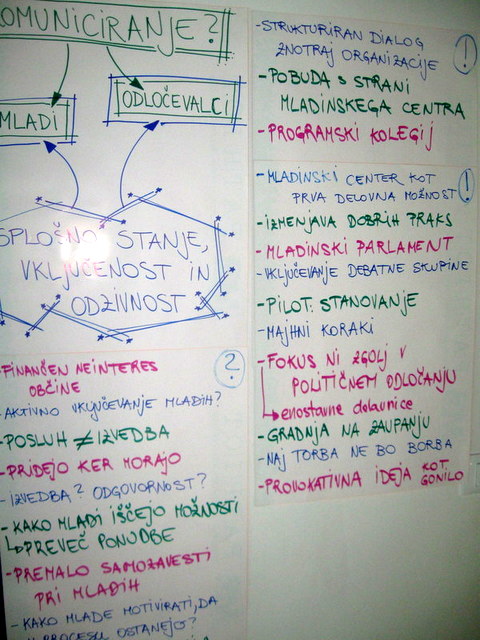 KOMUNICIRANJE?
MLADI
ODLOČEVALCI
SPLOŠNO STANJE,
VKLJUČENOST IN
ODZIVNOST
?
-FINANČEN NEINTERES
OBČINE
-AKTIVNO VKLJUČEVANJE MLADIH?
-POSLUH ≠ IZVEDBA
-PRIDEJO KER MORAJO
-IZVEDBA? ODGOVORNOST?
-KAKO MLADI IŠČEJO MOŽNOSTI
↳PREVEČ PONUDBE
-PREMALO SAMOZAVESTI
PRI MLADIH
-KAKO MLADE MOTIVIRATI, DA
V PROCESU OSTANEJO?
-STRUKTURIRAN DIALOG
ZNOTRAJ ORGANIZACIJE
!
-POBUDA S STRANI
MLADINSKEGA CENTRA
-PROGRAMSKI KOLEGIJ
-MLADINSKI CENTER KOT
PRVA DELOVNA MOŽNOST
!
-IZMENJAVA DOBRIH PRAKS
-MLADINSKI PARLAMENT
-VKLJUČEVANJE DEBATNE SKUPINE
-PILOT. STANOVANJE
-MAJHNI KORAKI
-FOKUS NI ZGOLJ V
POLITIČNEM ODLOČANJU
↳enostavne delavnice
-GRADNJA NA ZAUPANJU
-NAJ TORBA NE BO BORBA
-PROVOKATIVNA IDEJA KOT
GONILO